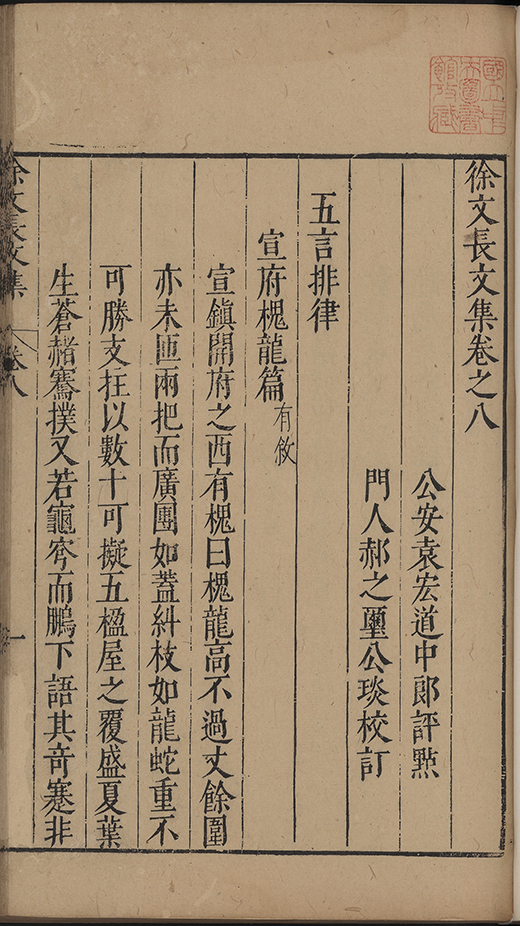 徐文長文集卷之八
公安袁宏道中郎評點
門人郝之璽公琰校訂
五言排律
宣府槐龍篇有敘
宣鎮開府之西有槐曰槐龍高不過丈餘圍
亦未匝兩把而廣團如蓋糾枝如龍蛇重不
可勝支拄以數十可擬五楹屋之覆盛夏葉
生蒼赭騫撲又若龜穹而鵬下語其奇蹇非
徐文長文集
卷八
一